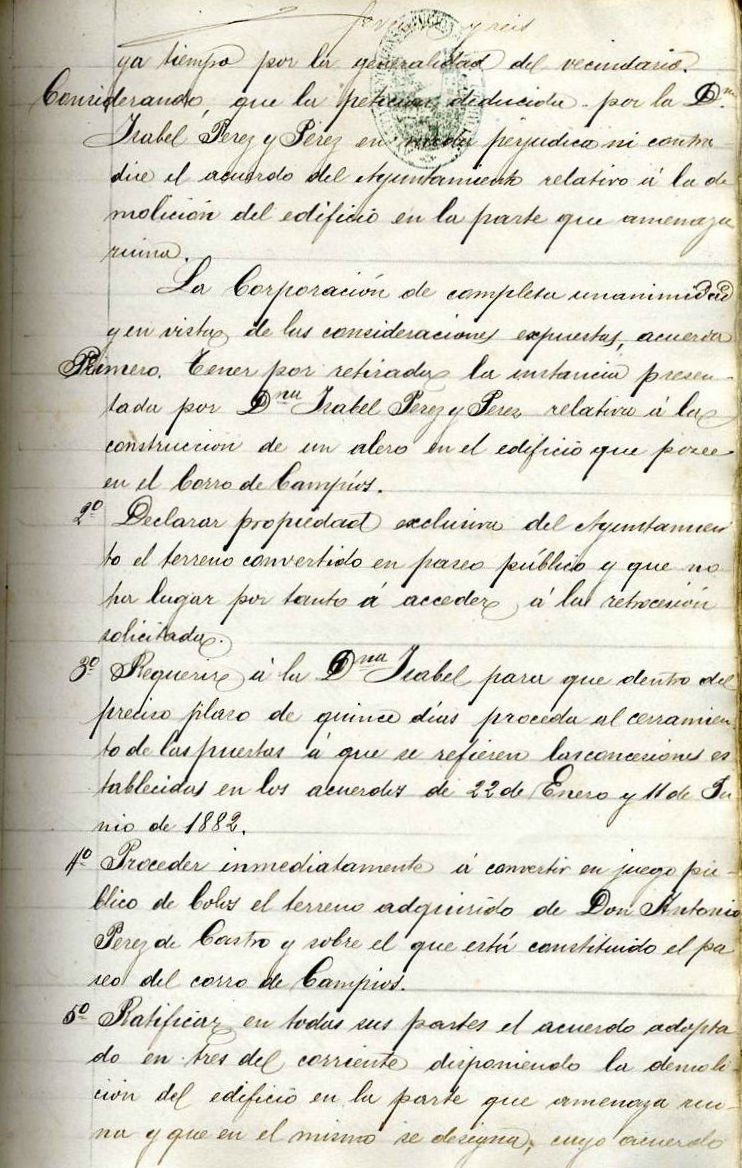 y seis
ya tiempo por la generalidad del vecindario.
Considerando, que la peticion deducida por la Dña
Isabel Perez y Pérez en nada perjudica ni contra
dice el acuerdo del Ayuntamiento relativo á la de
molición del edificio en la parte que amenaza
ruina.
La Corporación de completa unanimidad
y en vista de las consideraciones expuestas, acuerda
Primero. Tener por retirada la instancia presen-
tada por Dña Isabel Perez y Perez relativa á la
construccion de un alero en el edificio que posee
en el Corro de Campíos.
2º Declarar propiedad exclusiva del Ayuntamien
to el terreno convertido en paseo público y que no
ha lugar por tanto á acceder á la retrocesión
solicitada.
3º Requerir á la Dña Isabel para que dentro del
preciso plazo de quince días proceda al cerramien
to de las puertas á que se refieren las concesiones es
tablecidas en los acuerdos de 22 de Enero y 11 de Ju
nio de 1882.
4º Proceder inmediatamente á convertir en juego pú-
blico de bolos el terreno adquirido de Don Antonio
Perez de Castro y sobre el que está constituido el pa
seo del corro de Campios.
5º Ratificar en todas sus partes el acuerdo adopta
do en tres del corriente disponiendo la demoli-
ción del edificio en la parte que amenaza rui-
na y que en el mismo se designa, cuyo acuerdo